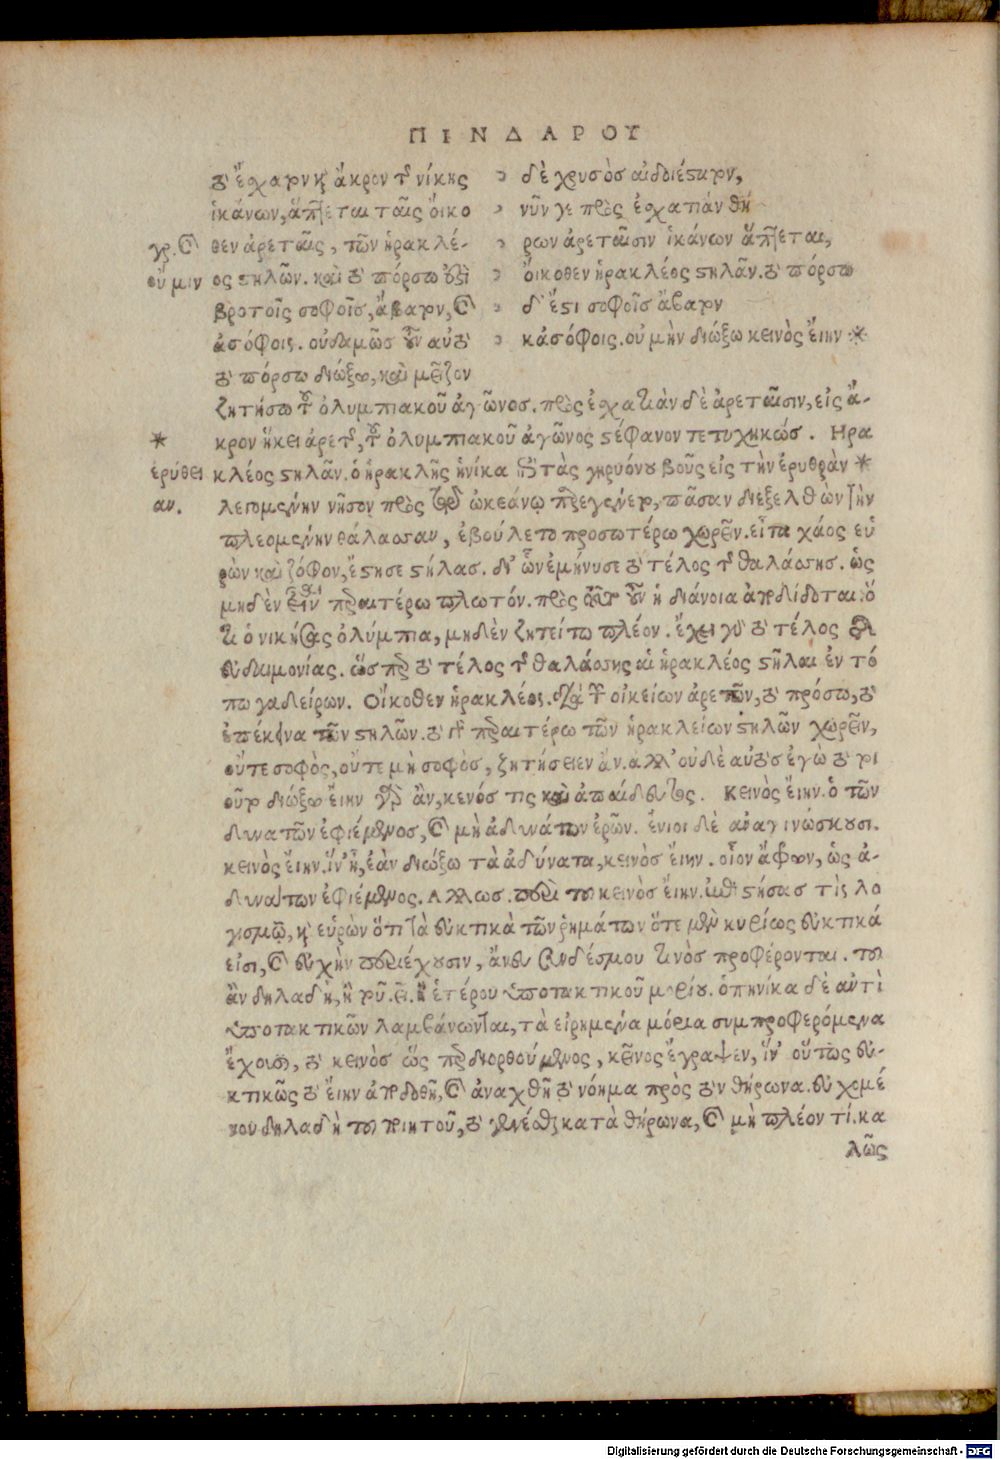 ΠΙΝΔΑΡΟΥ
τὸ ἔσχατον καὶ ἄκρον τῆς νίκης
ἱκάνων, ἅπτεται ταῖς οἴκο
θεν ἀρεταῖς, τῶν ἡρακλέ-
ος στηλῶν. καὶ τὸ πόρσω ἐστὶ
βροτοῖς σοφοῖς, ἄβατον, καὶ
ἀσόφοις. οὐδαμῶς οὖν αὐτὸ
τὸ πόρσω διώξω, καὶ μεῖζον
γρ. καὶ
οὔ μιν
δὲ χρυσὸς αἰδοιέστατον,
νῦν γε πρὸς ἐσχατιὰν θή
ρων ἀρεταῖσιν ἱκάνων ἅπτεται,
οἴκοθεν ἡρακλέος στηλᾶν. τὸ πόρσω
δ' ἔστι σοφοῖς ἄβατον
κἀσόφοις. οὐ μὴν διώξω κεινὸς εἴην *
ζητήσω τοῦ ὀλυμπιακοῦ ἀγῶνος. πρὸς ἐσχατιὰν δὲ ἀρεταῖσιν, εἰς ἄ-
κρον ἥκει ἀρετῆς, τοῦ ὀλυμπιακοῦ ἀγῶνος στέφανον τετυχηκώς. Ηρα
*
ἐρύθει
αν.
κλέος στηλᾶν. ὁ ἡρακλῆς ἡνίκα ἐπὶ τὰς γηρύονου βοῦς εἰς τὴν ἐρυθρὰν *
λεγομένην νῆσον πρὸς τῷ ὠκεάνῳ παρεγένετο, πᾶσαν διεξελθὼν τὴν
πλεομένην θάλασσαν, ἐβούλετο προσωτέρω χωρεῖν. εἶτα χάος εὑ
ρὼν καὶ ζόφον, ἔστησε στήλας. δι' ὧν ἐμήνυσε τὸ τέλος τῆς θαλάσσης. ὡς
μηδὲν εἶναι παραιτέρω πλωτόν. πρὸς οὖν ἡ διάνοια ἀποδίδοται. ὅ
τι ὁ νικήσας ὀλύμπια, μηδὲν ζητείτω πλέον. ἔχει γὰρ τὸ τέλος τῆς
εὐδαιμονίας. ὥσπερ τὸ τέλος τῆς θαλάσσης αἱ ἡρακλέος στῆλαι ἐν τό
πῳ γαδείρων. Οἴκοθεν ἡρακλέος. διὰ τῶν οἰκείων ἀρετῶν, τὸ πρόσω, τὸ
ἐπέκεινα τῶν στηλῶν. τὸ γὰρ παραιτέρω τῶν ἡρακλείων στηλῶν χωρεῖν,
οὔτε σοφὸς, οὔτε μὴ σοφὸς, ζητήσειεν ἄν. ἀλλ' οὐδὲ αὐτὸς ἐγὼ τὸ τοι
οῦτο διώξω εἴην γὰρ ἂν, κενός τις καὶ ἀπαίδευτος. Κεινὸς εἴην. ὁ τῶν
δυνατῶν ἐφιέμενος, καὶ μὴ ἀδυνάτων ἐρῶν. ἔνιοι δὲ ἀναγινώσκουσι.
κεινὸς εἴην. ἵν' ᾖ, ἐὰν διώξω τὰ ἀδύνατα, κεινὸς εἴην. οἷον ἄφρων, ὡς ἀ-
δυνάτων ἐφιέμενος. Αλλως. περὶ τοῦ κεινὸς εἴην. ἐπιστήσας τὶς λο
γισμῷ, καὶ εὑρὼν ὅτι τὰ εὐκτικὰ τῶν ῥημάτων ὅτε μὲν κυρίως εὐκτικά
εἰσι, καὶ εὐχὴν περιέχουσιν, ἄνευ συνδέσμου τινὸς προφέρονται. τοῦ
ἂν δηλαδὴ, ἢ ἑτέρου ὑποτακτικοῦ μορίου. ὁπηνίκα δὲ ἀντὶ
ὑποτακτικῶν λαμβάνωνται, τὰ εἰρημένα μόρια συμπροφερόμενα
ἔχουσι, τὸ κεινὸς ὡς παραδιορθούμενος, κεῖνος ἔγραψεν, ἵν' οὕτως εὐ-
κτικῶς τὸ εἴην ἀποδοθῇ, καὶ ἀναχθῇ τὸ νόημα πρὸς τὸν θήρωνα. εὐχομέ
νου δηλαδὴ τοῦ ποιητοῦ, τὸ γενέσθαι κατὰ θήρωνα, καὶ μὴ πλέον τί. κα
λῶς
Digitalisierung gefördert durch die Deutsche Forschungsgemeinschaft - DFG